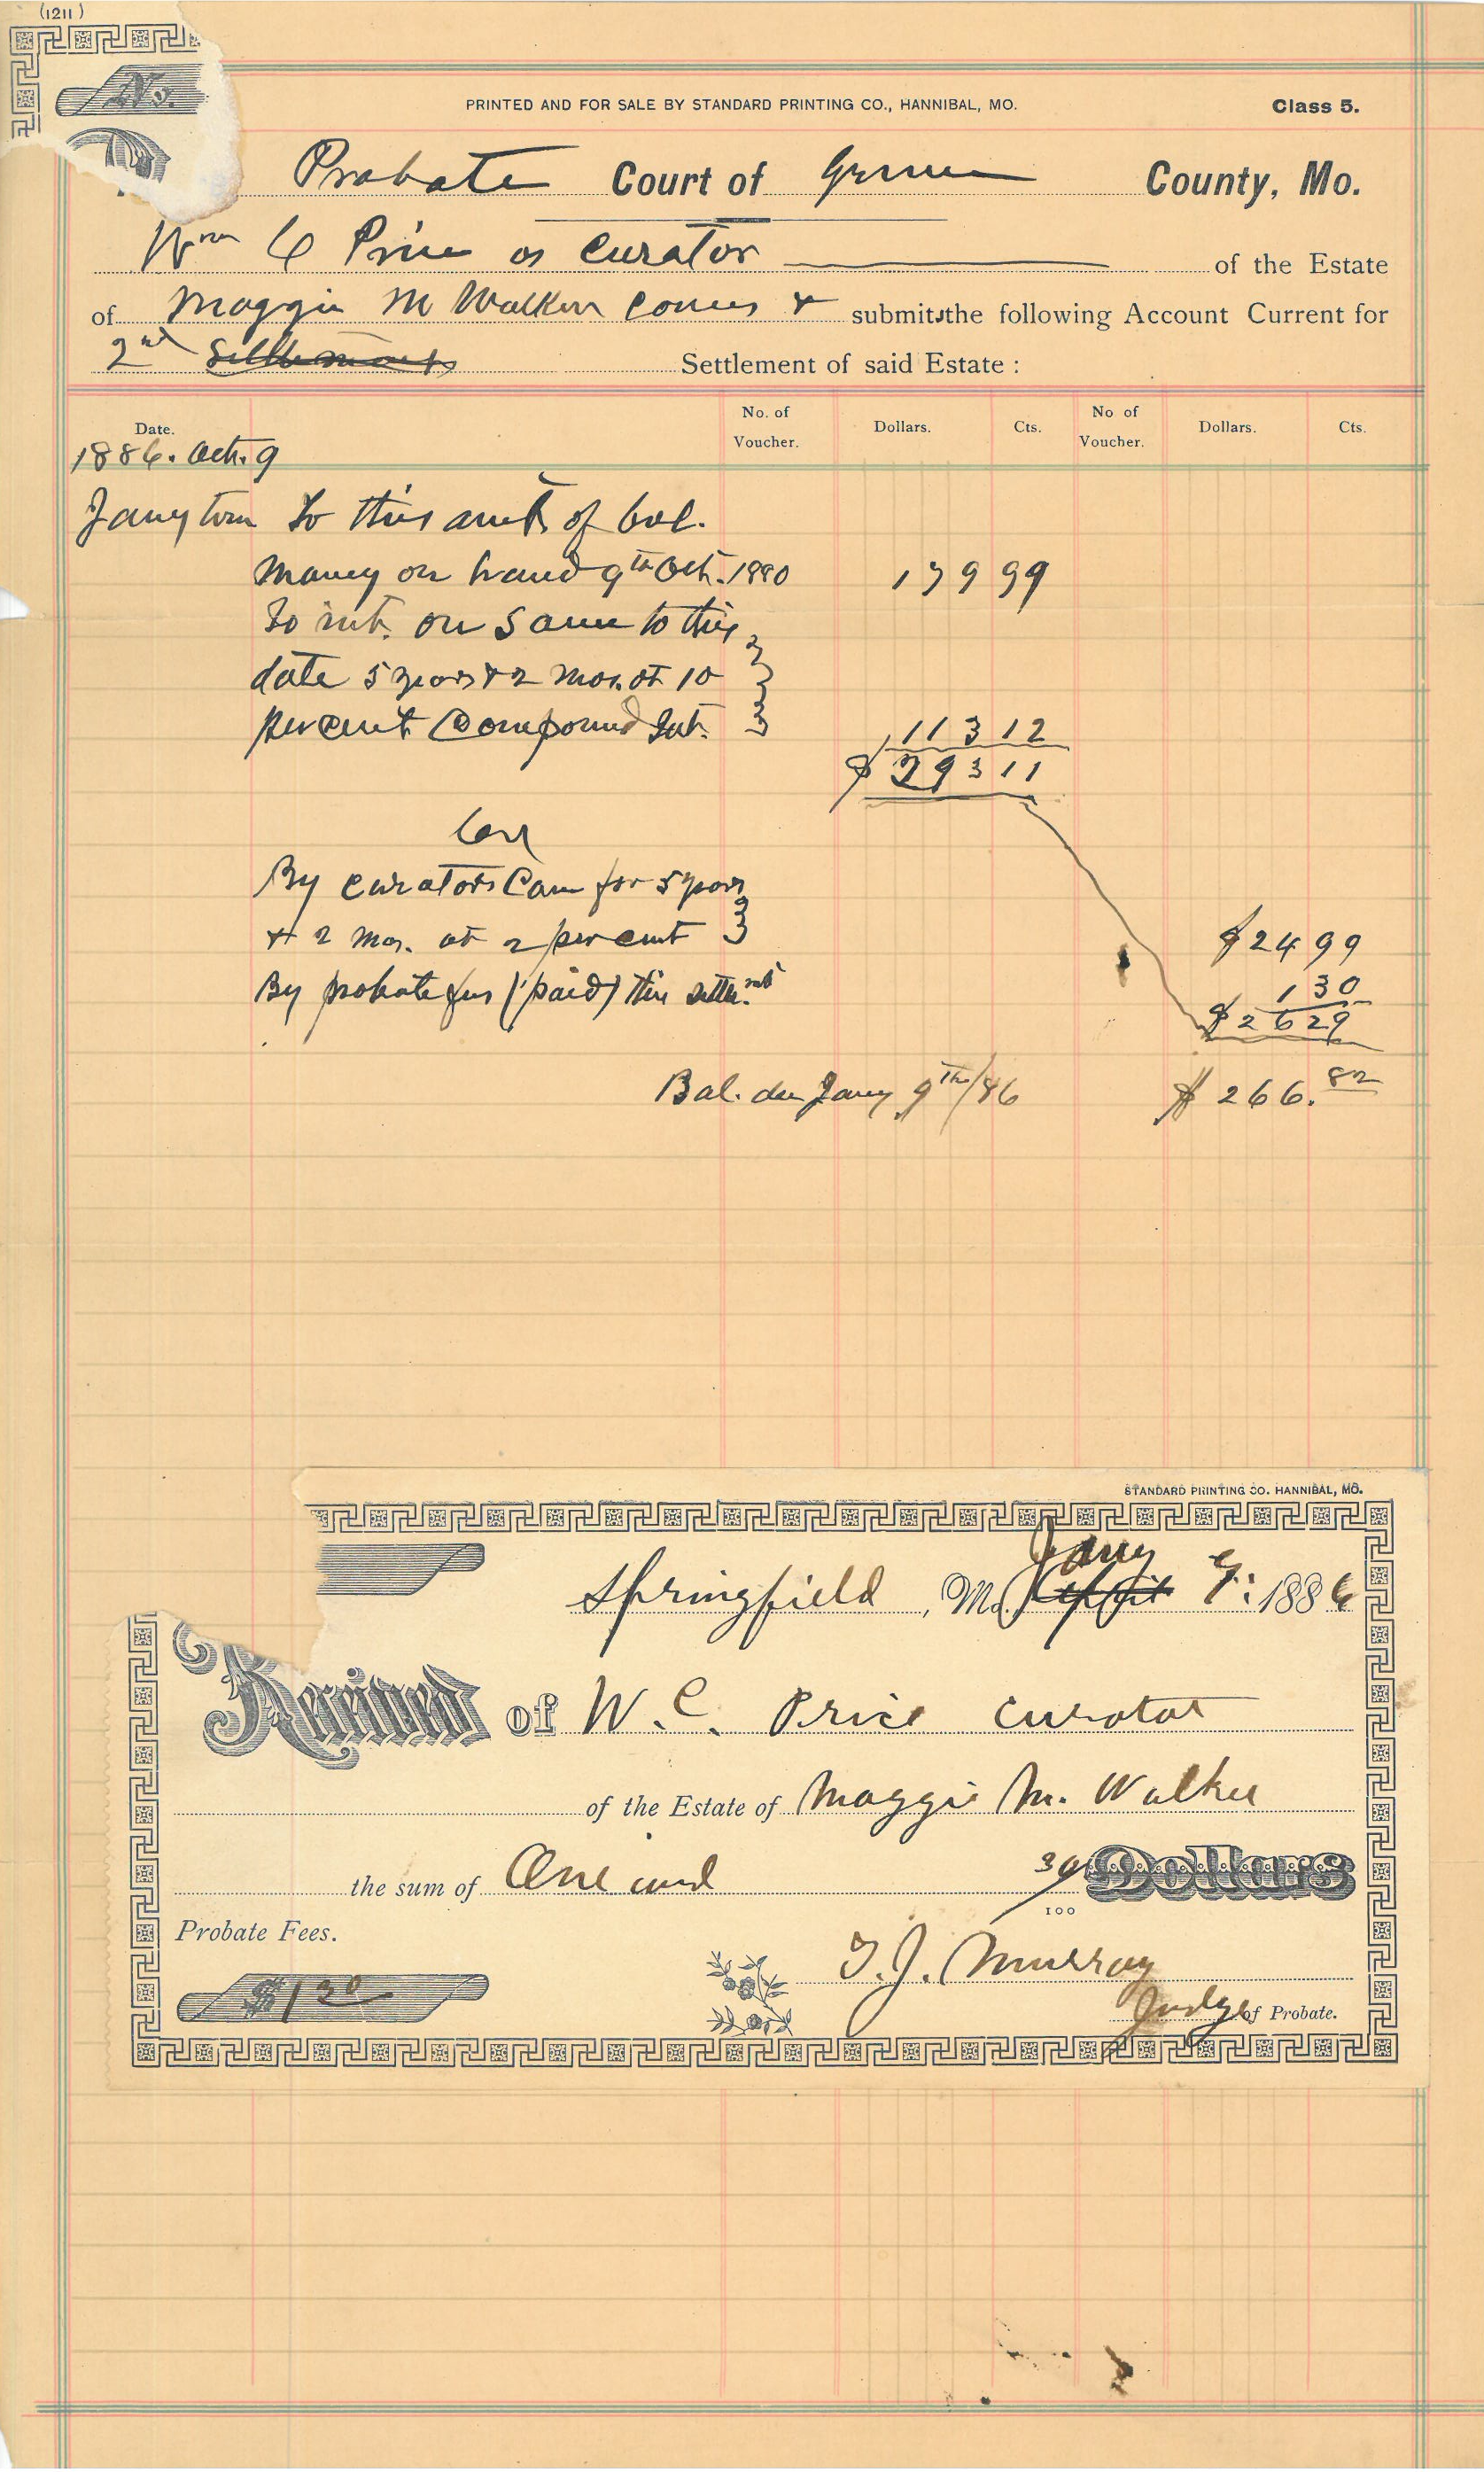 (1211)
No.
PRINTED AND FOR SALE BY STANDARD PRINTING CO., HANNIBAL, MO.
Class 5.
Probate Court of Greene County, Mo.
Wm C Price as Curator of the Estate
of Maggie M Walker Comes & submits the following Account Current for
2nd Settlements Settlement of said Estate :
Date. No. of Voucher. Dollars. Cts. No of Voucher. Dollars. Cts.
1886. Oct. 9
Jany term To this amt of bal.
money on hand 9th Oct. 1880 179 99
To int. on same to this
date 5 years & 2 mos. at 10
percent Compound Int. 113 12
$ 293 11
By curators Com for 5 years
& 2 mos. at 2 percent $24 99
By probate fees (paid) this settlmt 1 30
$26 29
Bal. due Jany 9th/86 $ 266.82
STANDARD PRINTING CO. HANNIBAL, MO.
Springfield, Mo. Jany 9: 1886
Received of W. C. Price Curator
of the Estate of Maggie M. Walker
the sum of One and 30/100 Dollars
Probate Fees.
$1 30
T. J. Murray
Judge of Probate.